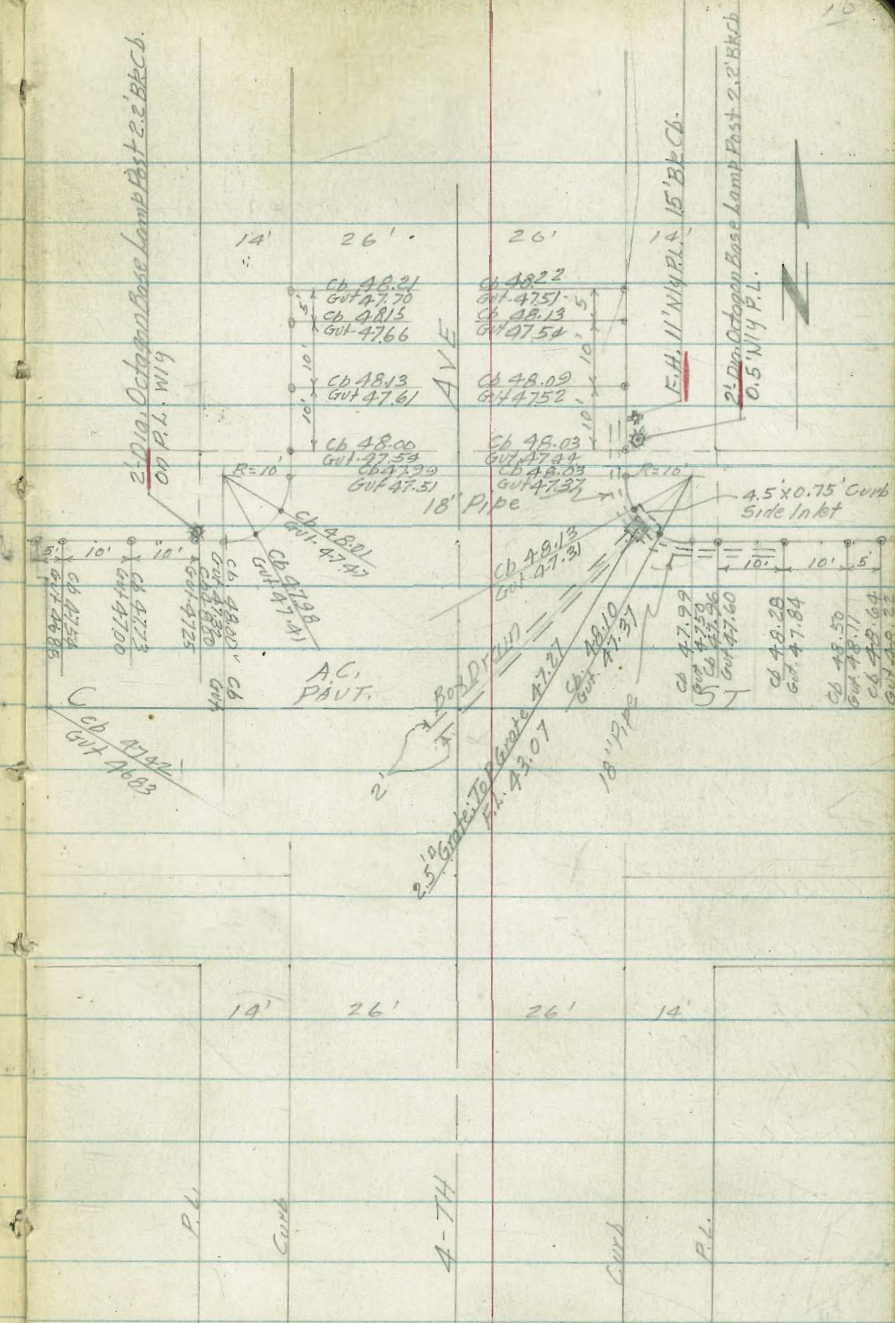 10
2' Dia. Octagon Base Lamp Post 2.2' BkCb.
on P.L. W'ly
F.H. 11' N'ly P.L. 15' BkCb.
2' Dia. Octagon Base Lamp Post 2.2' BkCb
0.5' N'ly P.L.
N
14' 26' 26' 14'
Cb 48.21
Gut 47.70
Cb 48.15
Gut 47.66
Cb 48.13
Gut 47.61
Cb 48.00
Gut 47.54
Cb 47.99
Gut 47.51
5'
10'
10'
AVE
Cb 48.22
Gut 47.51
Cb 48.13
47.54
Cb 48.09
Gut 47.52
Cb 48.03
Gut 47.44
Cb 48.03
Gut 47.37
5'
10'
10'
R=10'
R=10'
18" Pipe
4.5' x 0.75' Curb
Side Inlet
Cb 48.01
Gut 47.47
Cb 47.98
Gut 47.41
Cb 48.13
Gut 47.31
Cb 48.10
Gut 47.37
5' 10' 10'
10' 10' 5'
Cb 47.54
Gut 46.86
Cb 47.73
Gut 47.00
Gut 47.25
Cb 48.00
Cb
Gut
Cb 47.99
Gut 47.50
Gut 47.60
Cb 48.28
Gut 47.84
Cb 48.50
Cb 48.64
C
ST
Cb 47.42
Gut 46.83
A.C.
PAVT.
Box Drain
2'
2.5'□ Grate. Top Grate 47.27
F.L. 43.07
18" Pipe
14' 26' 26' 14'
P.L.
Curb
4-TH
Curb
P.L.